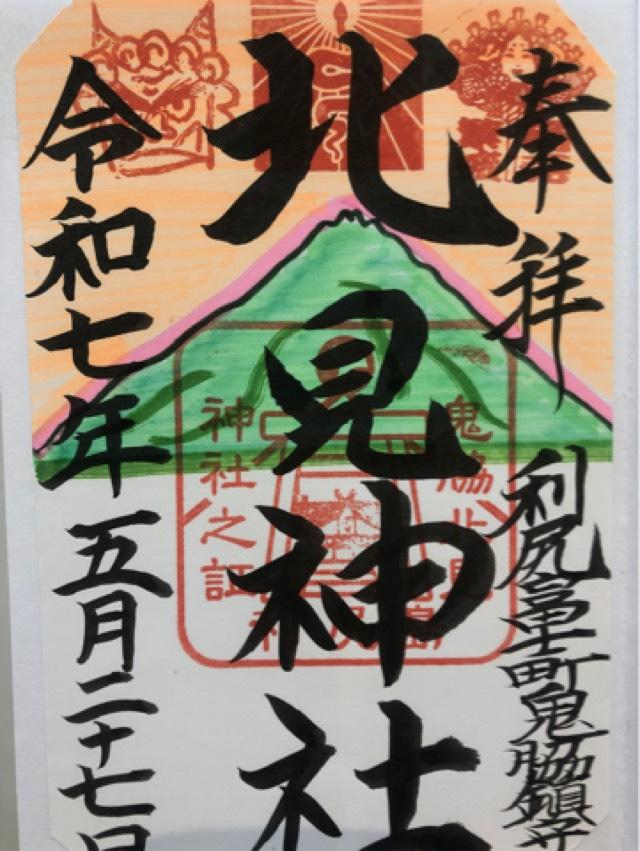 奉拝
利尻富士町鬼脇鎮守
北見神社
令和七年五月二十七日
鬼脇北見
神社之証